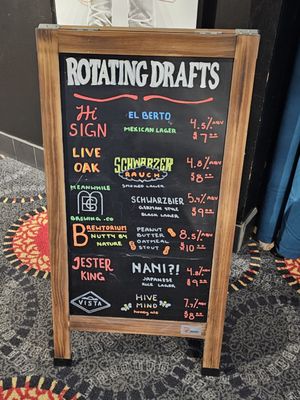 ROTATING DRAFTS
Hi SIGN
EL BERTO
MEXICAN LAGER
4.5% ABV
$7
LIVE OAK
SCHWARZER
RAUCH
SMOKED LAGER
4.8% ABV
$8
MEANWHILE
BREWING.CO
SCHWARZBIER
GERMAN STYLE
BLACK LAGER
$9
BREWTORIUM
NUTTY BY
NATURE
PEANUT
BUTTER
OATMEAL
STOUT
8.5% ABV
$10
JESTER
KING
NANI?!
JAPANESE
RICE LAGER
$9
VISTA
HIVE
MIND
honey ale
7.7% ABV
$8